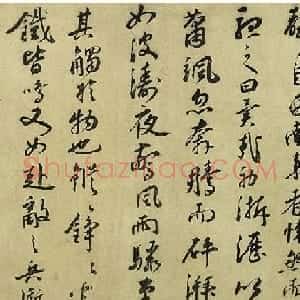 自西南來者悚然而
聽之曰異哉初淅瀝以
蕭颯忽奔騰而砰湃
如波濤夜驚風雨驟至
其觸於物也鏦〻錚〻金
鐵皆鳴又如赴敵之兵銜